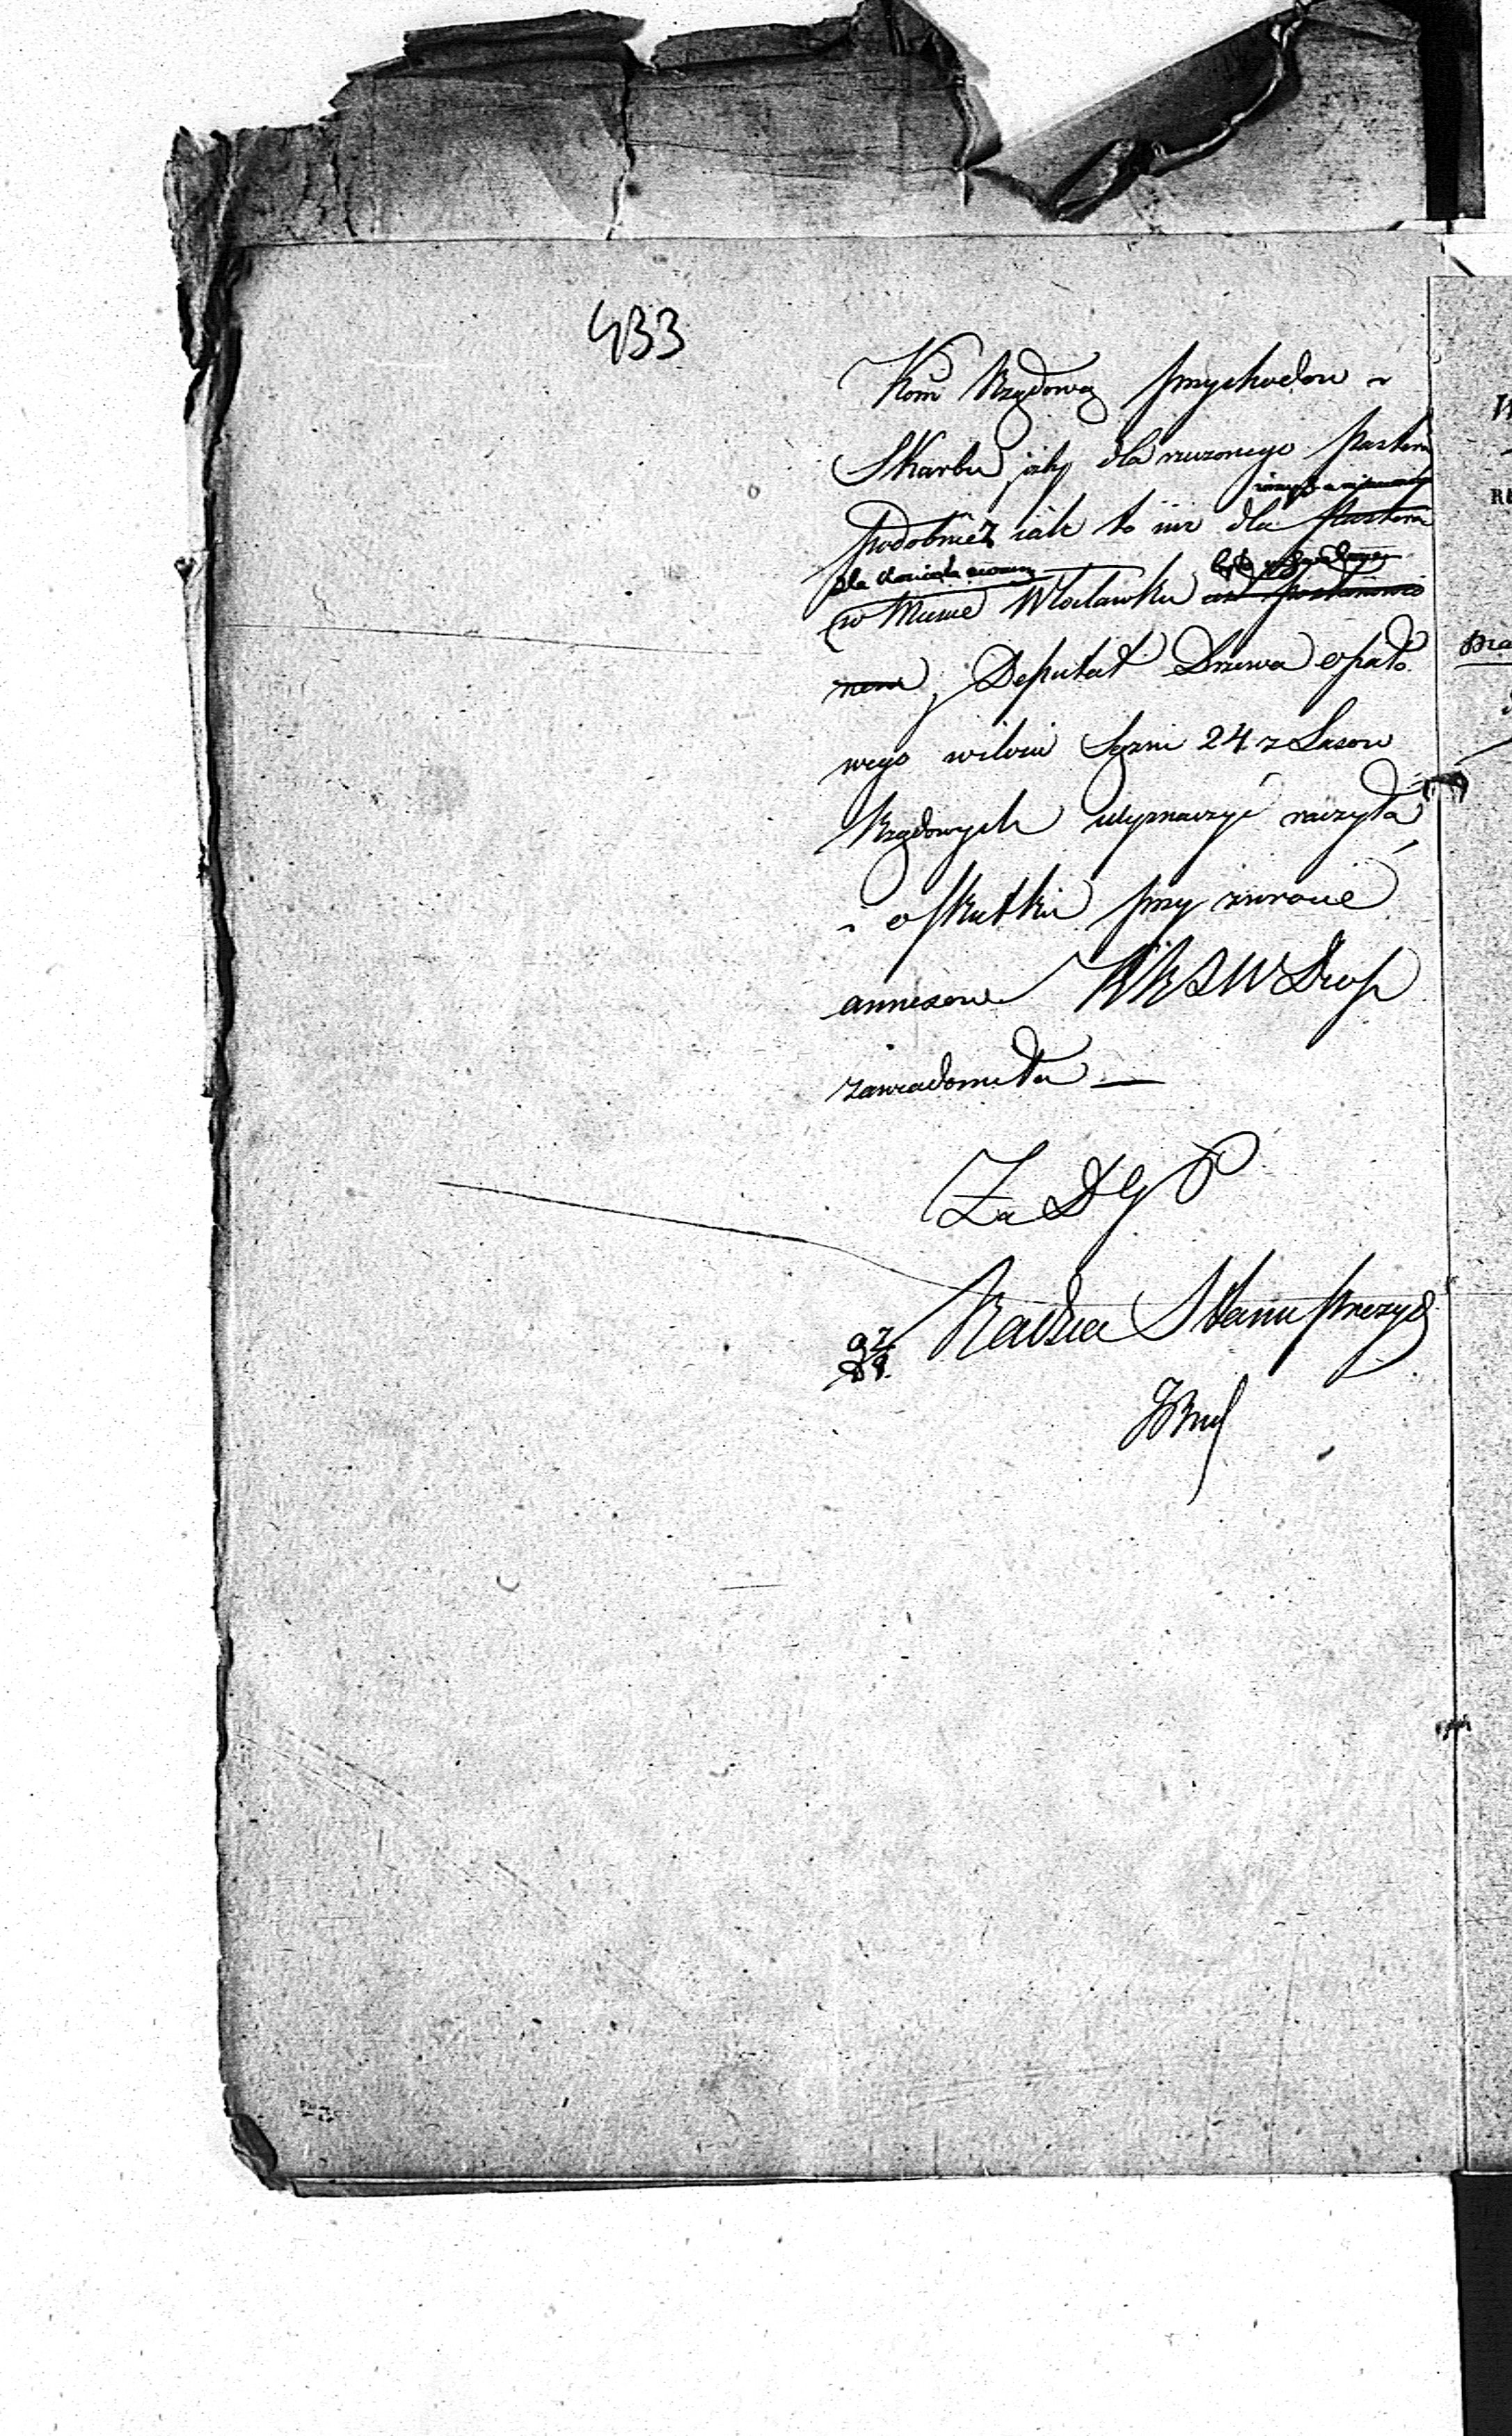 433
Kom Rządowa Przychodow i
Skarbu, iżby dla rzeczonego Pastora
podobnież iak to iuż dla Pastora
w Miescie Włocławku
nem, Deputat Drzewa opało
wego w ilości Sążni 24 z Lasow
Rządowych wyznaczyć raczyła,
i o skutku przy zwrocie
annexow KRSW Duch
zawiadomiła —
Za DGP
Radca Stanu Prezyd